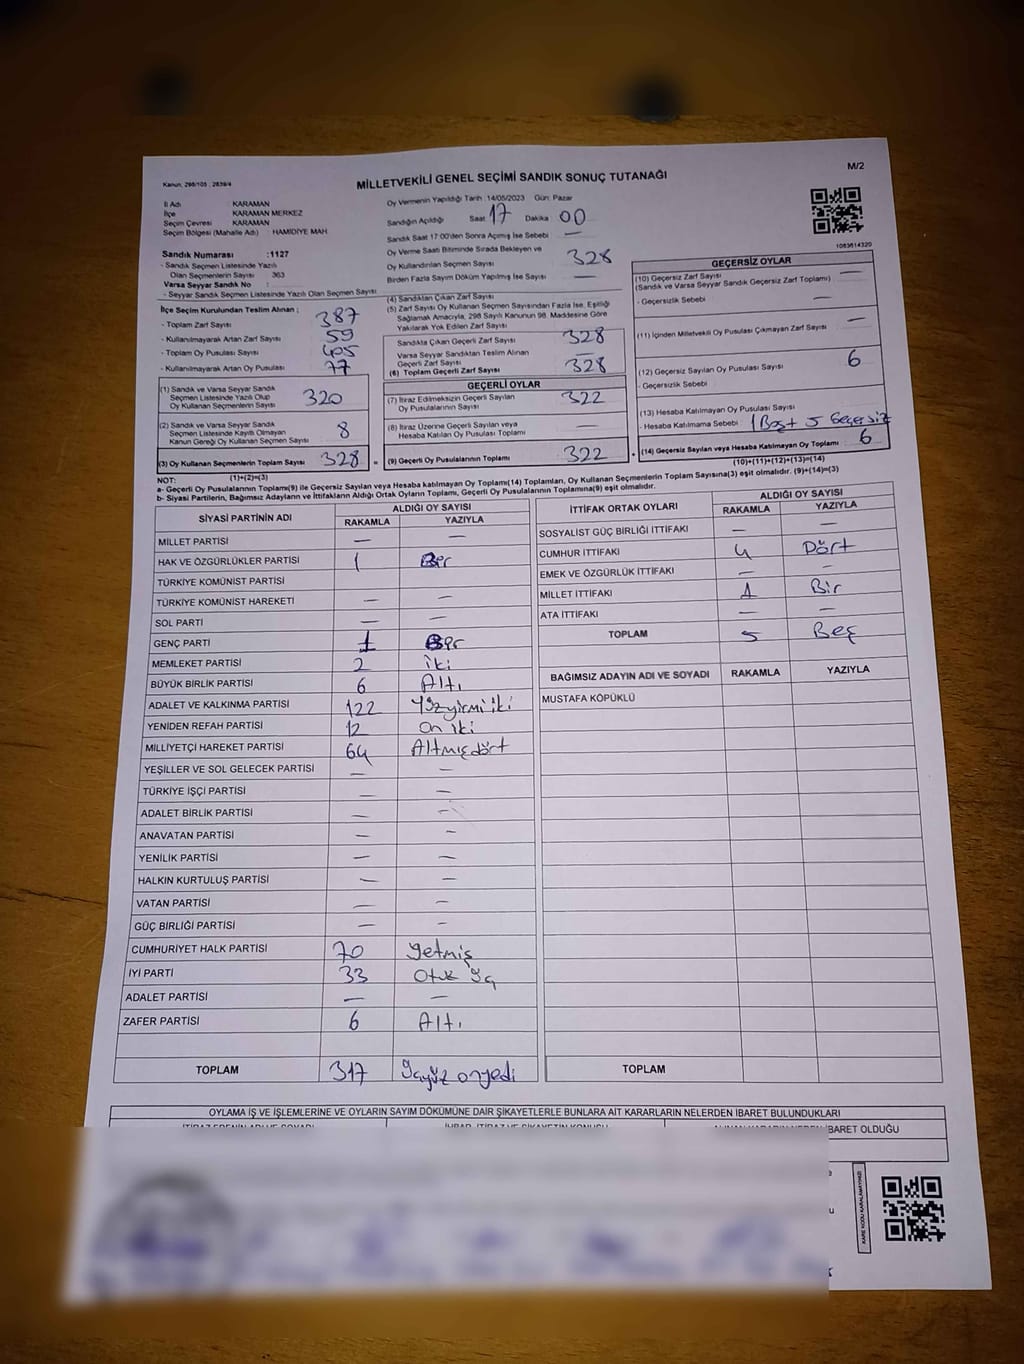 M/2
Kanun; 298/105 ; 2839/4
MİLLETVEKİLİ GENEL SEÇİMİ SANDIK SONUÇ TUTANAĞI
İl Adı : KARAMAN
İlçe KARAMAN MERKEZ
Seçim Çevresi : KARAMAN
Seçim Bölgesi (Mahalle Adı) : HAMİDİYE MAH
Sandık Numarası :1127
- Sandık Seçmen Listesinde Yazılı
Olan Seçmenlerin Sayısı 363
Varsa Seyyar Sandık No :
- Seyyar Sandık Seçmen Listesinde Yazılı Olan Seçmen Sayısı
İlçe Seçim Kurulundan Teslim Alınan ;
- Toplam Zarf Sayısı 387
- Kullanılmayarak Artan Zarf Sayısı 59
- Toplam Oy Pusulası Sayısı 405
- Kullanılmayarak Artan Oy Pusulası 77
(1) Sandık ve Varsa Seyyar Sandık
Seçmen Listesinde Yazılı Olup
Oy Kullanan Seçmenlerin Sayısı 320
(2) Sandık ve Varsa Seyyar Sandık
Seçmen Listesinde Kayıtlı Olmayan
Kanun Gereği Oy Kullanan Seçmen Sayısı 8
(3) Oy Kullanan Seçmenlerin Toplam Sayısı 328
(1)+(2)=(3)
Oy Vermenin Yapıldığı Tarih :14/05/2023 Gün: Pazar
Sandığın Açıldığı Saat 17 Dakika 00
Sandık Saat 17:00'den Sonra Açılmış İse Sebebi —
Oy Verme Saati Bitiminde Sırada Bekleyen ve
Oy Kullandırılan Seçmen Sayısı 328
Birden Fazla Sayım Döküm Yapılmış İse Sayısı —
(4) Sandıktan Çıkan Zarf Sayısı
(5) Zarf Sayısı Oy Kullanan Seçmen Sayısından Fazla İse, Eşitliği
Sağlamak Amacıyla, 298 Sayılı Kanunun 98. Maddesine Göre
Yakılarak Yok Edilen Zarf Sayısı
Sandıkta Çıkan Geçerli Zarf Sayısı 328
Varsa Seyyar Sandıktan Teslim Alınan
Geçerli Zarf Sayısı —
(6) Toplam Geçerli Zarf Sayısı 328
GEÇERLİ OYLAR
(7) İtiraz Edilmeksizin Geçerli Sayılan
Oy Pusulalarının Sayısı 322
(8) İtiraz Üzerine Geçerli Sayılan veya
Hesaba Katılan Oy Pusulası Toplamı —
= (9) Geçerli Oy Pusulalarının Toplamı 322
1083614320
GEÇERSİZ OYLAR
(10) Geçersiz Zarf Sayısı —
(Sandık ve Varsa Seyyar Sandık Geçersiz Zarf Toplamı)
- Geçersizlik Sebebi —
(11) İçinden Milletvekili Oy Pusulası Çıkmayan Zarf Sayısı —
(12) Geçersiz Sayılan Oy Pusulası Sayısı 6
- Geçersizlik Sebebi
(13) Hesaba Katılmayan Oy Pusulası Sayısı
- Hesaba Katılmama Sebebi : 1 Boş + 5 Geçersiz
+ (14) Geçersiz Sayılan veya Hesaba Katılmayan Oy Toplamı 6
(10)+(11)+(12)+(13)=(14)
NOT:
a- Geçerli Oy Pusulalarının Toplamı(9) ile Geçersiz Sayılan veya Hesaba Katılmayan Oy Toplamı(14) Toplamları, Oy Kullanan Seçmenlerin Toplam Sayısına(3) eşit olmalıdır. (9)+(14)=(3)
b- Siyasi Partilerin, Bağımsız Adayların ve İttifakların Aldığı Ortak Oyların Toplamı, Geçerli Oy Pusulalarının Toplamına(9) eşit olmalıdır.
SİYASİ PARTİNİN ADI ALDIĞI OY SAYISI
RAKAMLA YAZIYLA
MİLLET PARTİSİ — —
HAK VE ÖZGÜRLÜKLER PARTİSİ 1 Bir
TÜRKİYE KOMÜNİST PARTİSİ
TÜRKİYE KOMÜNİST HAREKETİ — —
SOL PARTİ — —
GENÇ PARTİ 1 Bir
MEMLEKET PARTİSİ 2 iki
BÜYÜK BİRLİK PARTİSİ 6 Altı
ADALET VE KALKINMA PARTİSİ 122 Yüzyirmi iki
YENİDEN REFAH PARTİSİ 12 On iki
MİLLİYETÇİ HAREKET PARTİSİ 64 Altmışdört
YEŞİLLER VE SOL GELECEK PARTİSİ — —
TÜRKİYE İŞÇİ PARTİSİ — —
ADALET BİRLİK PARTİSİ — —
ANAVATAN PARTİSİ — —
YENİLİK PARTİSİ — —
HALKIN KURTULUŞ PARTİSİ — —
VATAN PARTİSİ — —
GÜÇ BİRLİĞİ PARTİSİ — —
CUMHURİYET HALK PARTİSİ 70 Yetmiş
İYİ PARTİ 33 Otuz üç
ADALET PARTİSİ — —
ZAFER PARTİSİ 6 Altı
TOPLAM 317 Üçyüz onyedi
İTTİFAK ORTAK OYLARI ALDIĞI OY SAYISI
RAKAMLA YAZIYLA
SOSYALİST GÜÇ BİRLİĞİ İTTİFAKI — —
CUMHUR İTTİFAKI 4 Dört
EMEK VE ÖZGÜRLÜK İTTİFAKI — —
MİLLET İTTİFAKI 1 Bir
ATA İTTİFAKI — —
TOPLAM 5 Beş
BAĞIMSIZ ADAYIN ADI VE SOYADI RAKAMLA YAZIYLA
MUSTAFA KÖPÜKLÜ
TOPLAM
OYLAMA İŞ VE İŞLEMLERİNE VE OYLARIN SAYIM DÖKÜMÜNE DAİR ŞİKAYETLERLE BUNLARA AİT KARARLARIN NELERDEN İBARET BULUNDUKLARI
İBARET OLDUĞU
KARE KODU KARALAMAYINIZ!